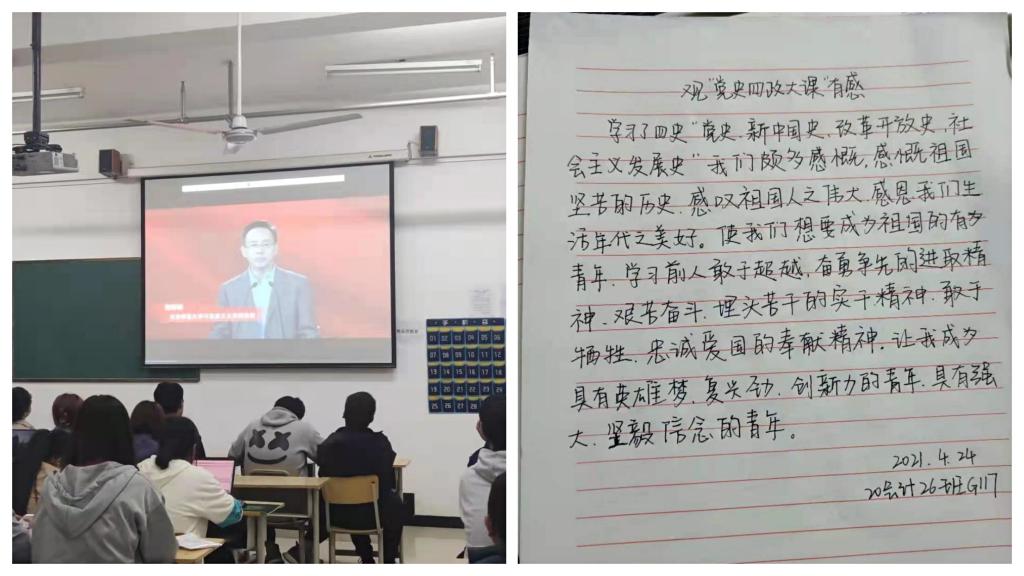 手机袋
01 02 03 04 05 06
07 08 09 10 11 12
13 14 15 16 17 18
19 20 21 22 23 24
25 26
观“党史四政大课”有感
学习了四史“党史、新中国史、改革开放史、社
会主义发展史”我们颇多感慨,感慨祖国
坚苦的历史、感叹祖国人之伟大、感恩我们生
活年代之美好。使我们想要成为祖国的有为
青年、学习前人敢于超越,奋勇争先的进取精
神、艰苦奋斗、埋头苦干的实干精神、敢于
牺牲、忠诚爱国的奉献精神、让我成为
具有英雄梦、复兴劲、创新力的青年、具有强
大、坚毅信念的青年。
2021.4.24
20会计26班G117